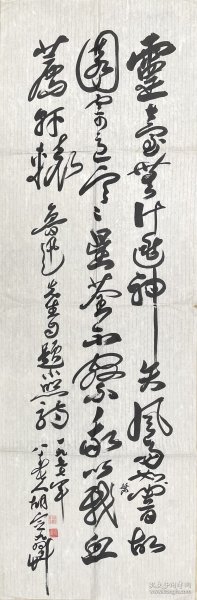 靈臺無计逃神矢風雨如磐暗故
園寄意寒星荃不察我以我血
薦軒轅 魯迅先生自題小照詩
一九七七年
老人胡